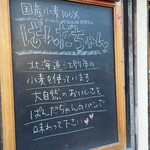 国産小麦100%
ぱんだちゃん
北海道江別市の
小麦を使っています
大自然のおいしさを
ぱんだちゃんのパンで
味わって下さい